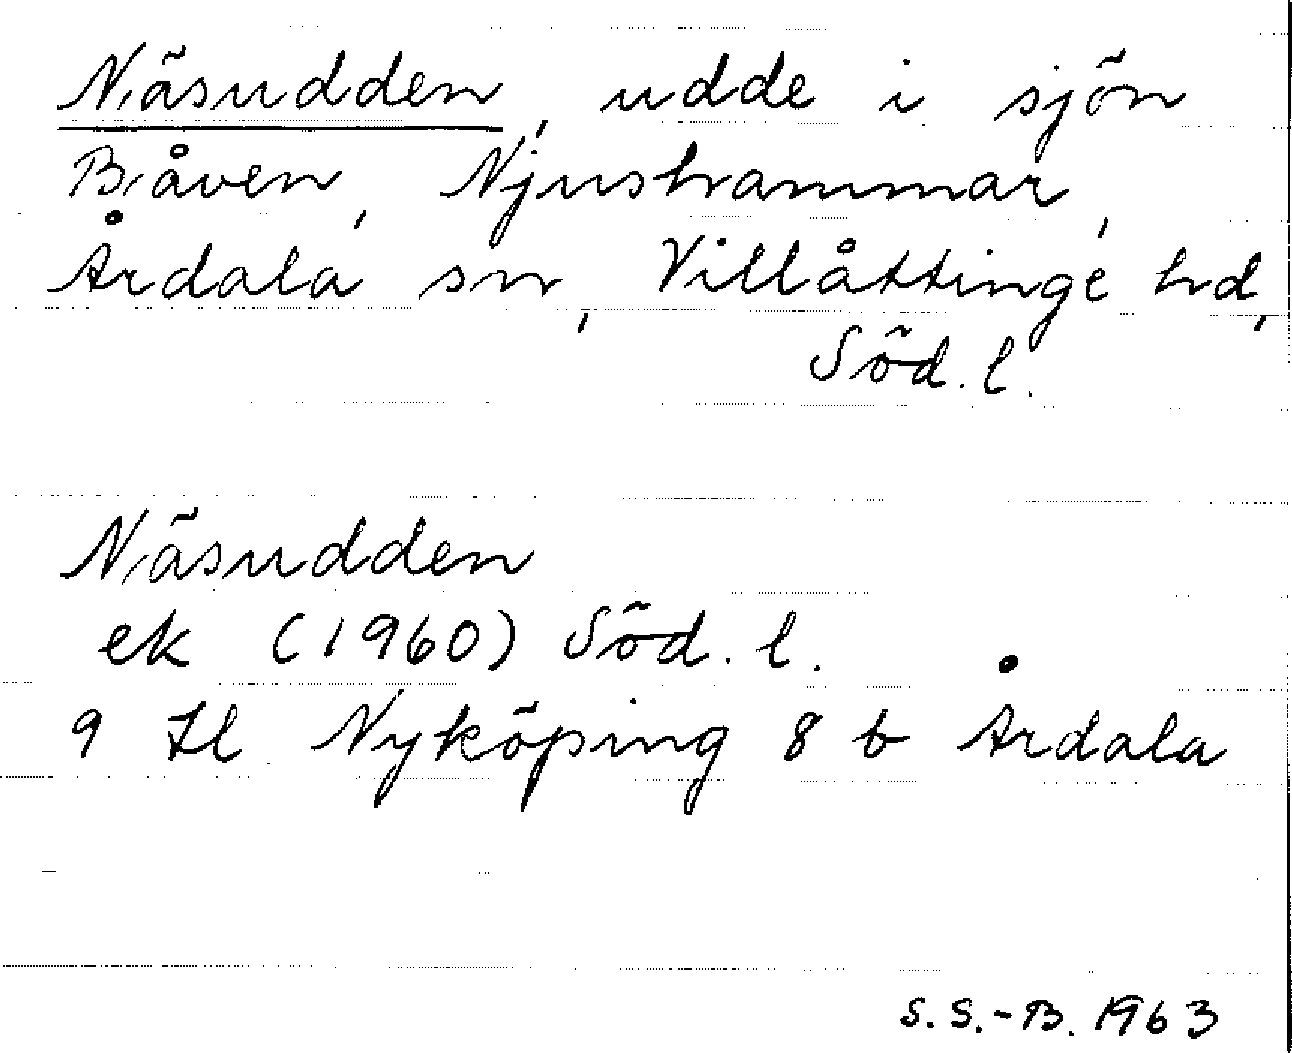 Näsudden, udde i sjön
Båven, Njushammar,
Årdala sn, Villåttinge hd,
Söd. l.
Näsudden
ek (1960) Söd. l.
9 H Nyköping 8 b Årdala
S. S.-B. 1963